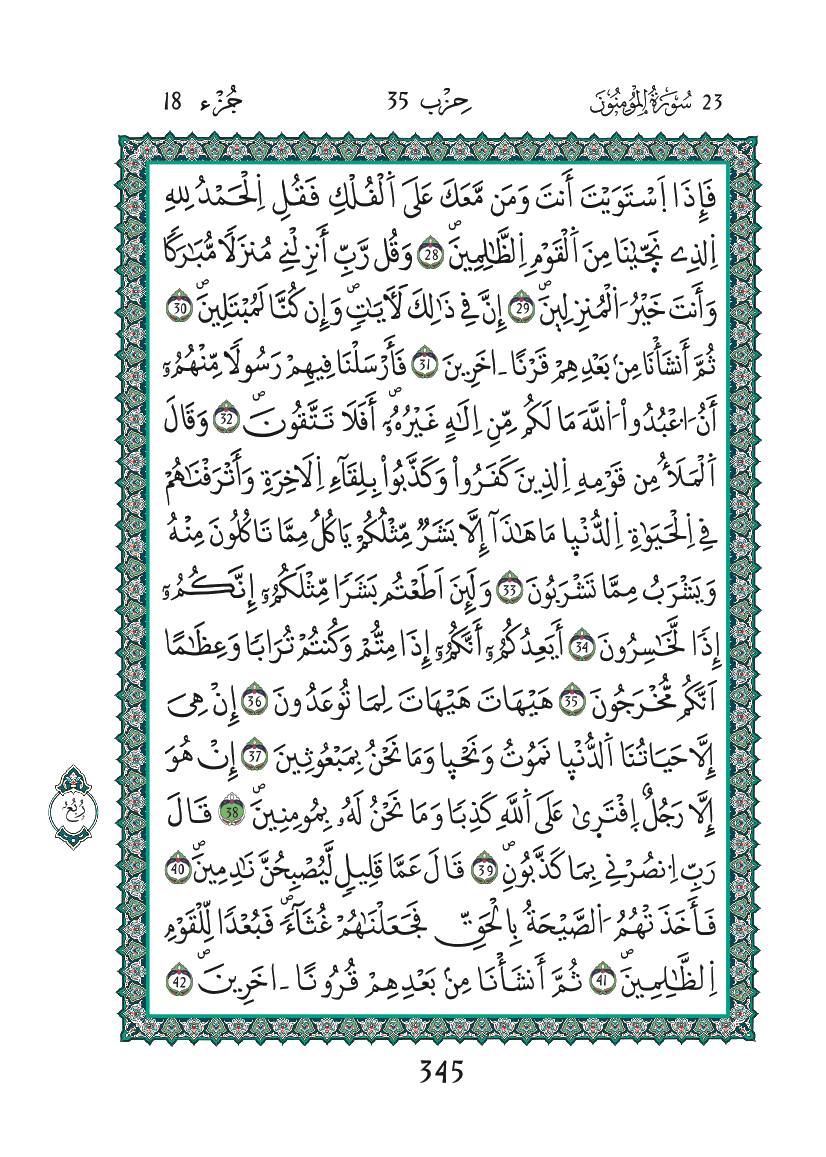 23 سُورَةُ الْمُومِنُونَ حِزْب 35 جُزْء 18
فَإِذَا اَسْتَوَيْتَ أَنتَ وَمَن مَّعَكَ عَلَى اَلْفُلْكِ فَقُلِ اِلْحَمْدُ لِلهِ
اِلذِے نَجّ۪يٰنَا مِنَ اَلْقَوْمِ اِلظَّٰلِمِينَۖ 28 وَقُل رَّبِّ أَنزِلْنِے مُنزَلاٗ مُّبَٰرَكاٗ
وَأَنتَ خَيْرُ اُلْمُنزِلِينَۖ 29 إِنَّ فِے ذَٰلِكَ لَأٓيَٰتٖۖ وَإِن كُنَّا لَمُبْتَلِينَۖ 30
ثُمَّ أَنشَأْنَا مِنۢ بَعْدِهِمْ قَرْناً اٰخَرِينَ 31 فَأَرْسَلْنَا فِيهِمْ رَسُولاٗ مِّنْهُمُۥٓ
أَنُ اُعْبُدُواْ اُللَّهَ مَا لَكُم مِّنِ اِلَٰهٍ غَيْرُهُۥٓۖ أَفَلَا تَتَّقُونَۖ 32 وَقَالَ
اَلْمَلَأُ مِن قَوْمِهِ اِلذِينَ كَفَرُواْ وَكَذَّبُواْ بِلِقَآءِ اِلَاخِرَةِ وَأَتْرَفْنَٰهُمْ
فِے اِلْحَيَوٰةِ اِلدُّنْي۪ا مَا هَٰذَآ إِلَّا بَشَرٞ مِّثْلُكُمْ يَاكُلُ مِمَّا تَاكُلُونَ مِنْهُ
وَيَشْرَبُ مِمَّا تَشْرَبُونَ 33 وَلَئِنَ اَطَعْتُم بَشَراٗ مِّثْلَكُمُۥٓ إِنَّكُمُۥٓ
إِذاٗ لَّخَٰسِرُونَ 34 أَيَعِدُكُمُۥٓ أَنَّكُمُۥٓ إِذَا مِتُّمْ وَكُنتُمْ تُرَاباٗ وَعِظَٰماً
اَنَّكُم مُّخْرَجُونَ 35 هَيْهَاتَ هَيْهَاتَ لِمَا تُوعَدُونَ 36 إِنْ هِيَ
إِلَّا حَيَاتُنَا اَلدُّنْي۪ا نَمُوتُ وَنَحْي۪ا وَمَا نَحْنُ بِمَبْعُوثِينَ 37 إِنْ هُوَ
إِلَّا رَجُلٌ اِ۪فْتَر۪ىٰ عَلَى اَللَّهِ كَذِباٗ وَمَا نَحْنُ لَهُۥ بِمُومِنِينَۖ 38 قَالَ
رَبِّ اِ۟نصُرْنِے بِمَا كَذَّبُونِۖ 39 قَالَ عَمَّا قَلِيلٖ لَّيُصْبِحُنَّ نَٰدِمِينَۖ 40
فَأَخَذَتْهُمُ اُلصَّيْحَةُ بِالْحَقِّ فَجَعَلْنَٰهُمْ غُثَآءٗۖ فَبُعْداٗ لِّلْقَوْمِ
اِلظَّٰلِمِينَۖ 41 ثُمَّ أَنشَأْنَا مِنۢ بَعْدِهِمْ قُرُوناً اٰخَرِينَۖ 42
رُبُعُ
345